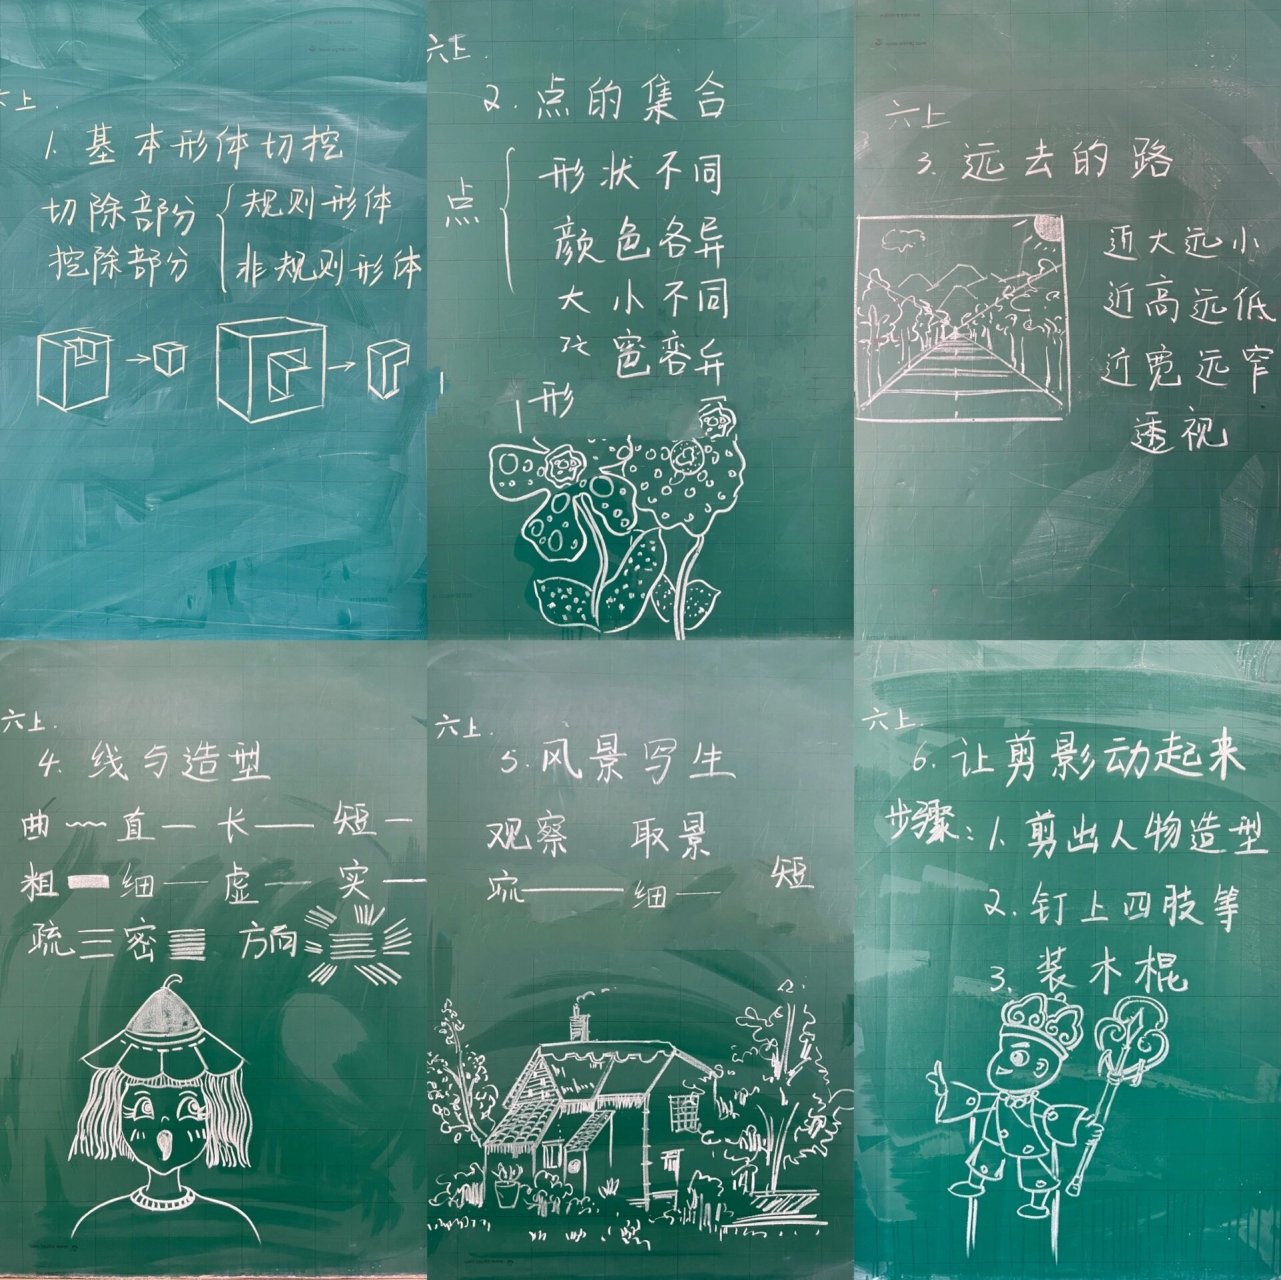 六上.
1. 基本形体切挖
切除部分
挖除部分
规则形体
非规则形体
六上.
2. 点的集合
点
形状不同
颜色各异
大小不同
形
六上
3. 远去的路
近大远小
近高远低
近宽远窄
透视
六上.
4. 线与造型
曲 直 长 短
粗 细 虚 实
疏 密 方向
六上.
5. 风景写生
观察 取景
细 短
六上.
6. 让剪影动起来
步骤: 1. 剪出人物造型
2. 钉上四肢等
3. 装木棍